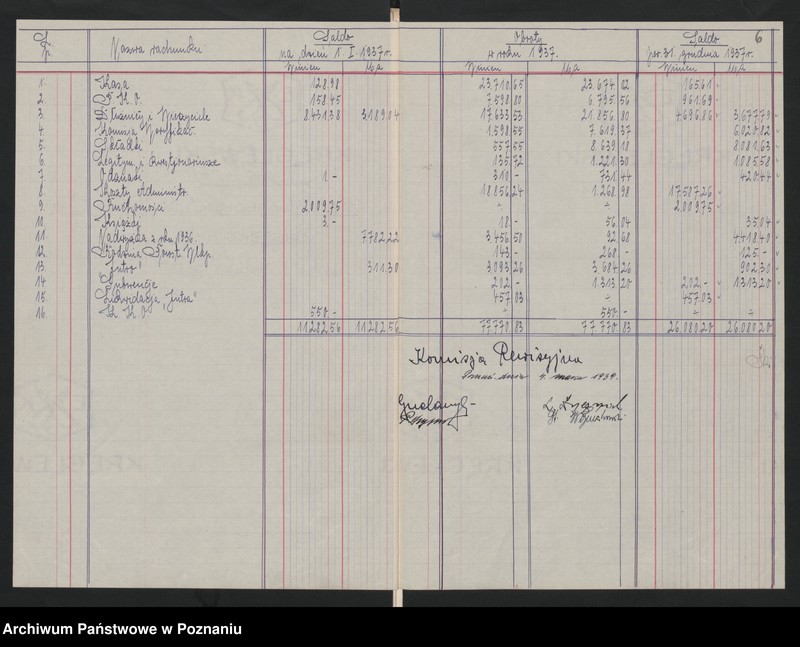 6
L.p. Nazwa rachunku Saldo na dzień 1. I. 1937 r. Obroty w roku 1937. Saldo per. 31. grudnia 1937 r.
Winien Ma Winien Ma Winien Ma
1. Kasa 128.98 23.710 65 23.674 02 165.61
2. P. K. O. 158.45 7.598 80 6.795 56 961.69
3. Dłużnicy i Wierzyciele 8.431.38 3.189.04 17.633 53 21.856 80 4.696.86 3.677.79
4. Komisja Weryfikac. 1.598 55 7.619 37 6.020.82
5. Składki 557 55 8.639 18 8.081.63
6. Legitym. i Kwestjonariusze 135 72 1.221 30 1.085.58
7. Odznaki 1.- 310 - 731 44 420.44
8. Koszty Administr. 18.856 24 1.268 98 17.587.26
9. Ruchomości 2.009.75 -"- -"- 2.009.75
10. Książki 3.- 18 - 56 04 35.04
11. Nadwyżka z roku 1936. 7.782.22 3.456 50 92 68 4.418.40
12. 143 - 268 - 125.-
13. "Jutro" 311.30 3.093 26 3.684 26 902.30
14. Subwencje 202 - 1.313 20 202.- 1.313.20
15. Likwidacja "Jutra" 457 03 -"- 457.03
16. K. K. O. 550.- -"- 550 - -"- -"-
11.282.56 11.282.56 77.770 83 77.770 83 26.080.20 26.080.20
Komisja Rewizyjna
dnia 4. marca 1939.